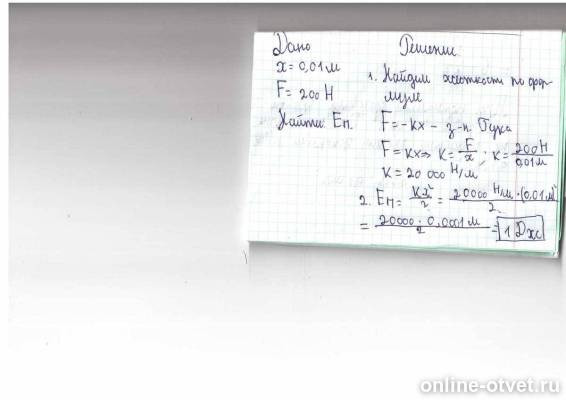 Дано
x = 0,01 м
F = 200 Н
Найти Eп.
Решение
1. Найдём жесткость по фор-
муле
F = -kx - з-н Гука
F = kx => k = F/x ; k = 200 Н/0,01 м
k = 20 000 Н/м
2. Eп = kx²/2 = 20000 Н/м · (0,01 м)²/2
= 20000 · 0,0001 м/2 = 1 Дж
online-otvet.ru